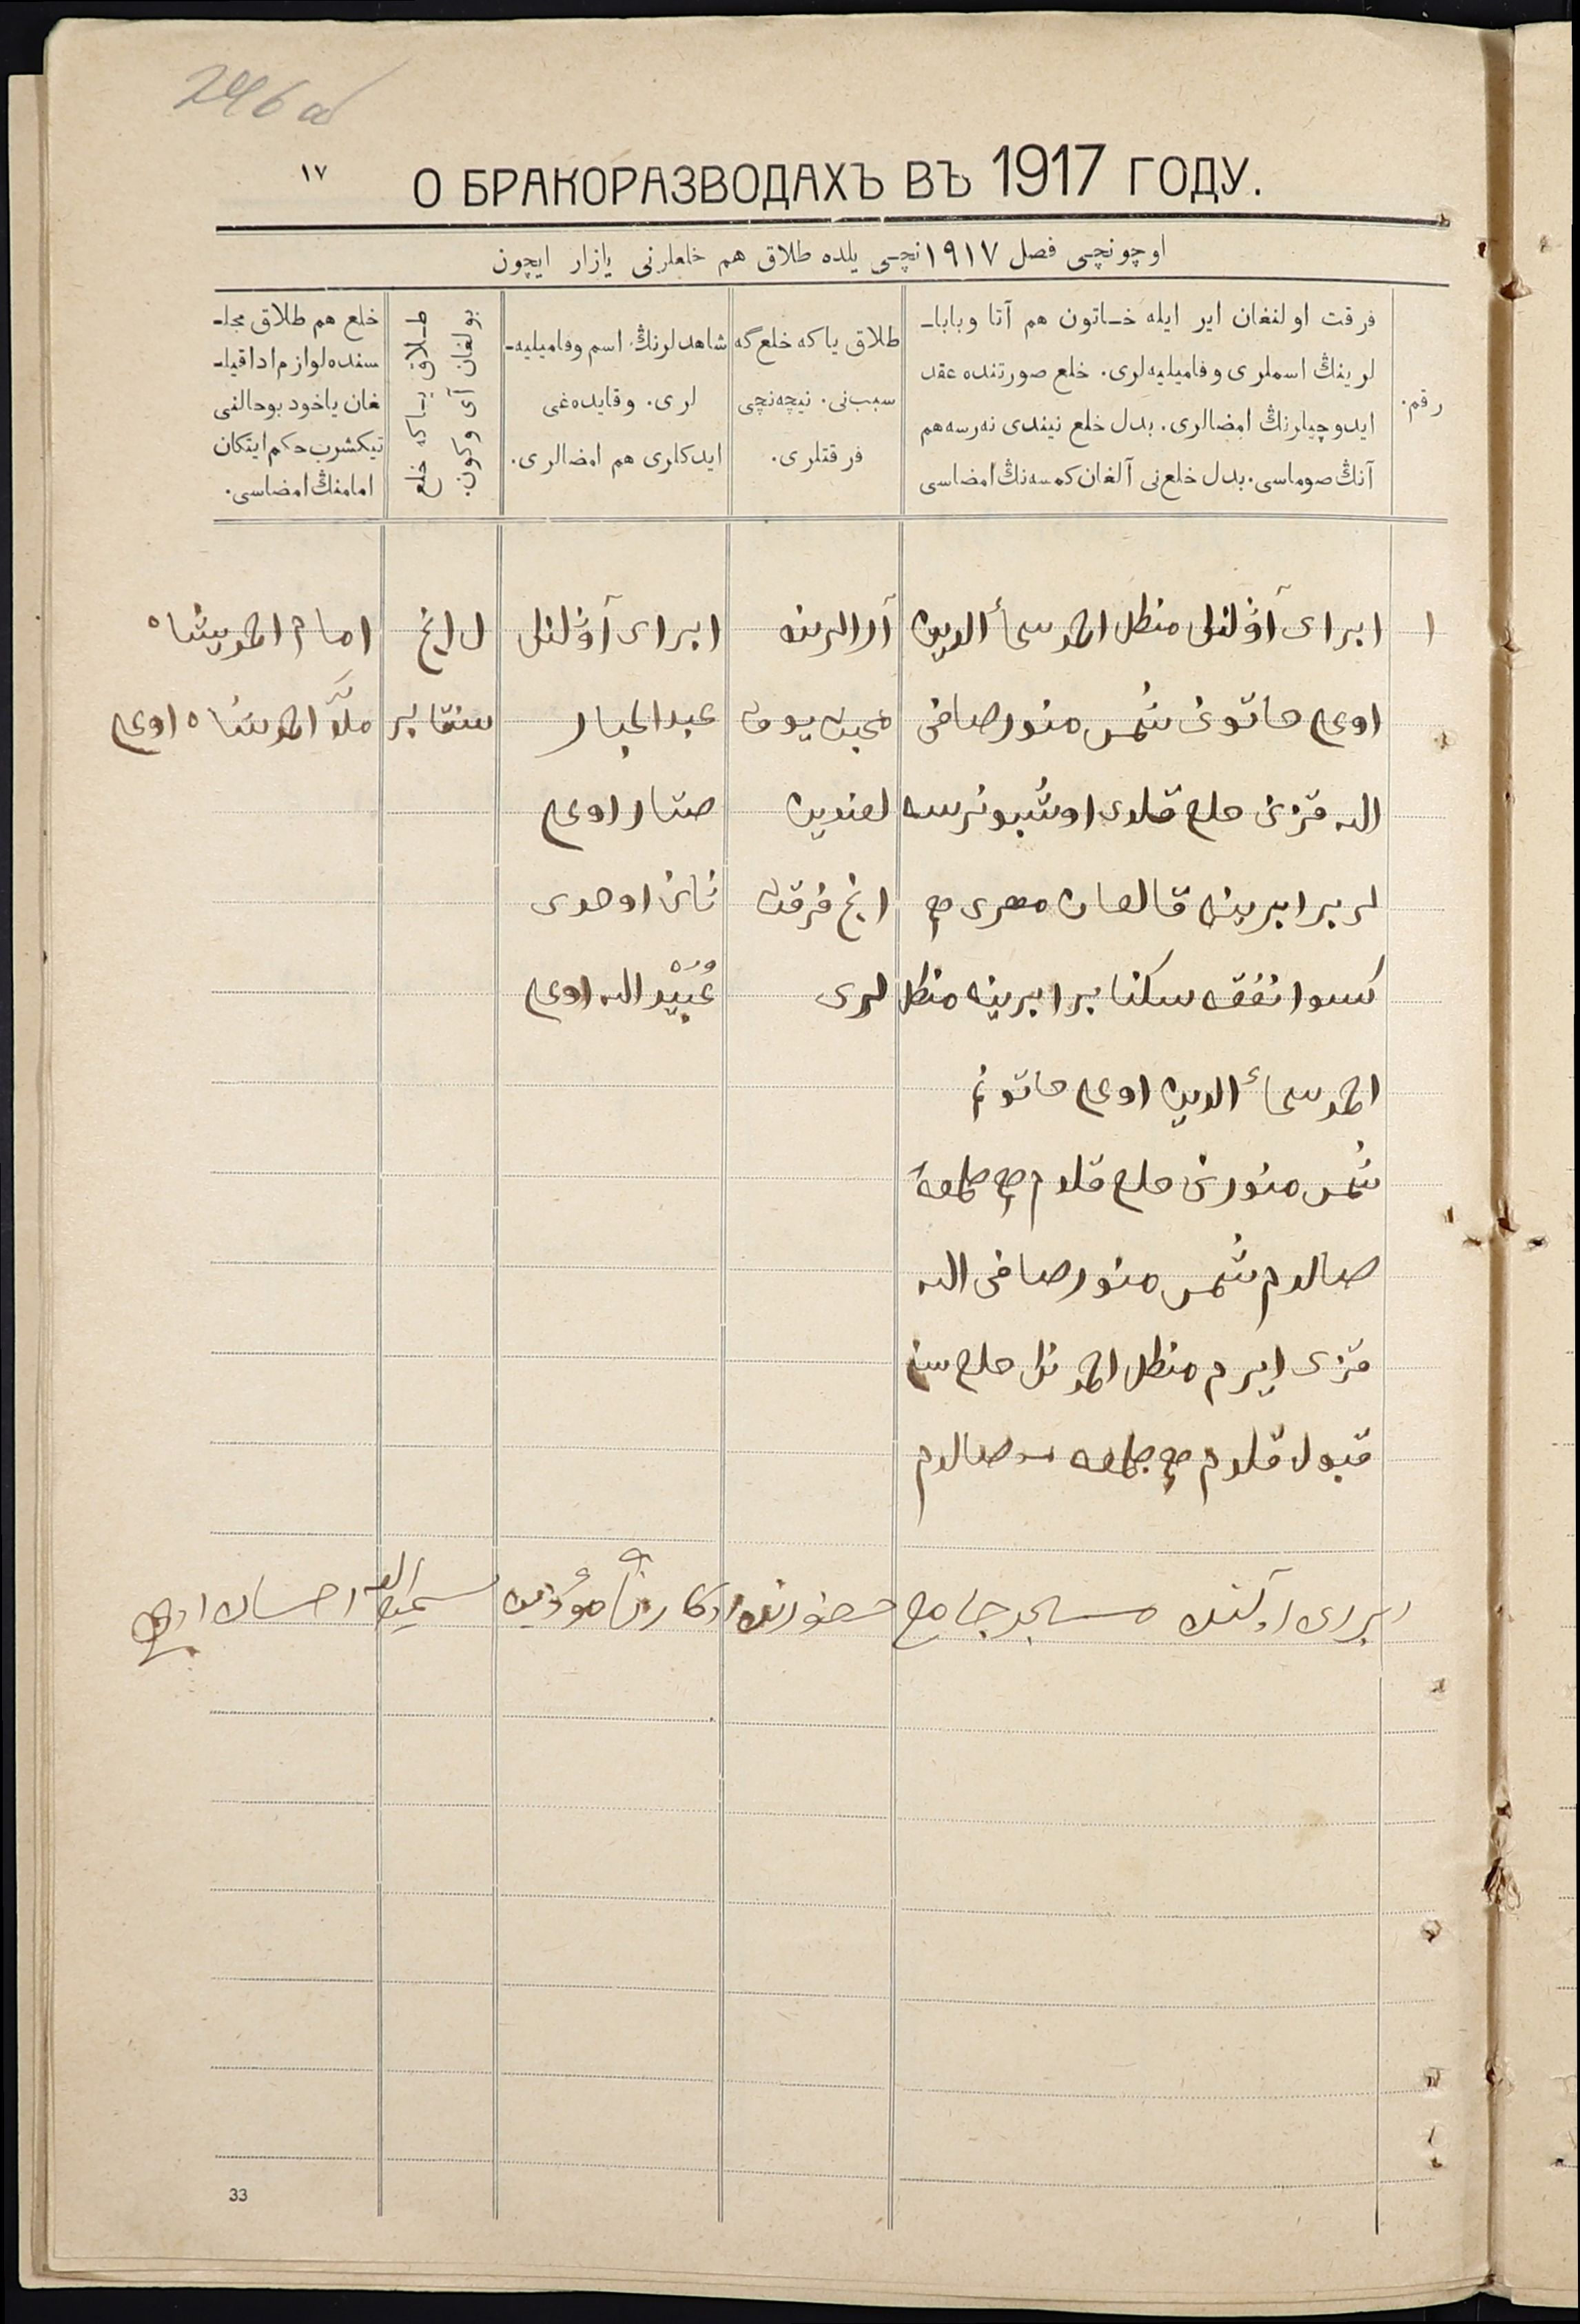 246 об
١٧
О БРАКОРАЗВОДАХЪ ВЪ 1917 ГОДУ.
اوچونچی فصل ١٩١٧ نچی یلده طلاق هم خلعلرنی یازار ایچون
رقم.
فرقت اولنغان ایر ایله خاتون هم آتا وبابا-
لرینڭ اسملری و فامیلیه‌لری. خلع صورتنده عقد
ایدوچیلرنڭ امضالری. بدل خلع نیندی نه‌رسه هم
آنڭ صوماسی. بدل خلع‌نی آلغان کمسه‌نڭ امضاسی
طلاق یا که خلع گه
سببنی. نیچه‌نچی
فرقتلری.
شاهدلرنڭ اسم وفامیلیه-
لری. وقایده‌غی
ایدکلری هم امضالری.
طلاق یاکه خلع
بولغان آی و کون.
خلع هم طلاق مجلـ
سنده لوازم ادا قیلـ
غان یاخود بوحالنی
تیکشرب حکم ایتکان
امامنڭ امضاسی.
١
ابرای آوڭلنڭ منظل احمد سماءالدین
اوغلی خاتونی شمس منور صافی
الله قزنی خلع قلدی اوشبو نرسه
لر برابرینه قالغان مهری هم
کسوا نفقه سکنا برابرینه منظل
احمد سماءالدین اوغلی خاتونم
شمس منورنی خلع قلدم هم طمغه
صالدم شمس منور صافی الله
قزی ایرم منظل احمدنڭ خلع سن
قبول قلدم هم طمغه صالدم
آرالرنده
محبت یوق
لغندین
انچ فرقت
لری
ابرای آوڭلنڭ
عبدالجبار
صتار اوغلی
ثانی اوحدی
عبیدالله اوغلی
سنتابر
امام احمدیشاه
ملا احمدشاه اوغلی
ابرای آولنڭ مسجد جامع حضورنده مؤذن سمیع الله احسان اوغلی
33